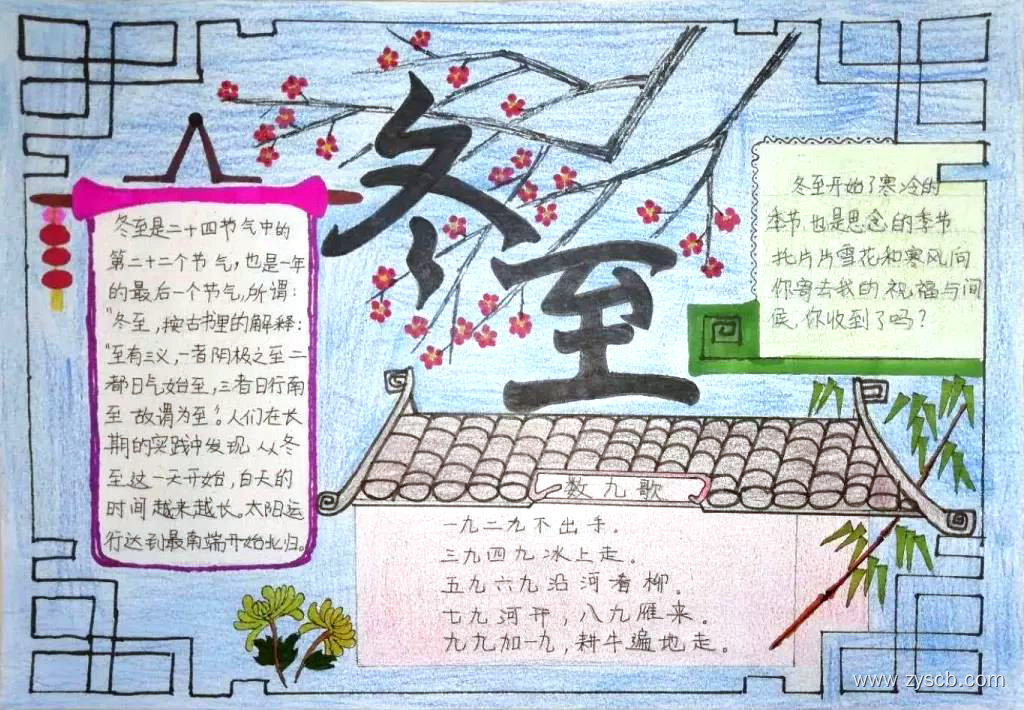 冬至
冬至是二十四节气中的
第二十二个节气,也是一年
的最后一个节气,所谓:
"冬至,按古书里的解释:
"至有三义,一者阴极之至二
都日气始至,三者日行南
至 故谓为至"。人们在长
期的实践中发现 从冬
至这一天开始,白天的
时间越来越长。太阳运
行达到最南端开始北归。
冬至开始了寒冷的
季节 也是思念的季节
托片片雪花和寒风向
你寄去我的祝福与问
侯,你收到了吗?
数九歌
一九二九不出手。
三九四九冰上走。
五九六九沿河看柳。
七九河开,八九雁来。
九九加一九,耕牛遍地走。
www.zyscb.com